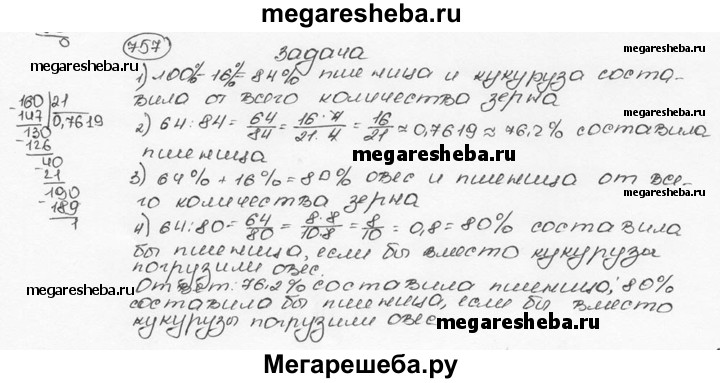 megaresheba.ru
0
757 Задача
megaresheba.ru
1) 100%-16%=84% пшеница и кукуруза соста-
вила от всего количества зерна
160|21
147 0,7619
130
-126
40
-21
190
-189
1
2) 64:84=64/84=16·4/21·4=16/21≈0,7619≈76,2% составила
пшеница
megaresheba.ru
3) 64%+16%=80% овес и пшеница от все-
го количества зерна
megaresheba.ru
4) 64:80=64/80=8·8/10·8=8/10=0,8=80% составила
бы пшеница, если бы вместо кукурузы
погрузили овес.
megaresheba.ru
Ответ: 76,2% составила пшеница; 80%
составила бы пшеница, если бы вместо
кукурузы погрузили овес
megaresheba.ru
Мегарешеба.ру